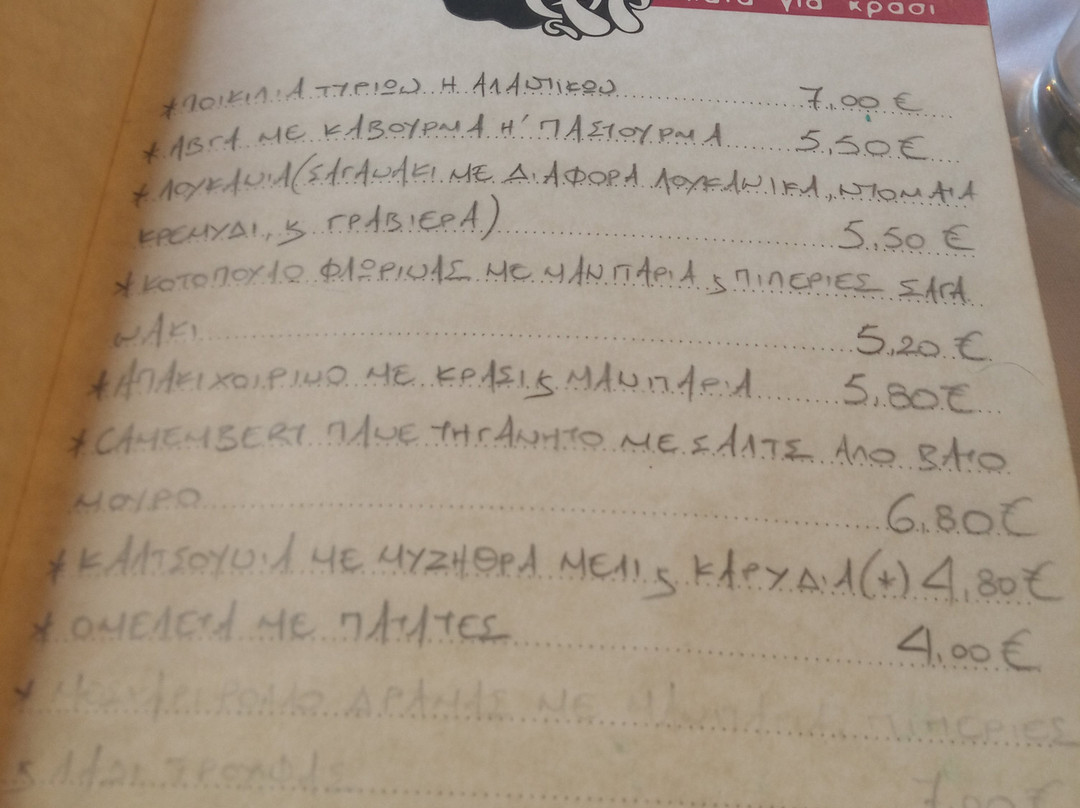 για κρασι
*ΠΟΙΚΙΛΙΑ ΤΥΡΙΩΝ Η ΑΛΑΝΤΙΚΩΝ 7,00 €
*ΑΒΓΑ ΜΕ ΚΑΒΟΥΡΜΑ Η' ΠΑΣΤΟΥΡΜΑ 5,50 €
*ΛΟΥΚΑΝΙΑ(ΣΑΓΑΝΑΚΙ ΜΕ ΔΙΑΦΟΡΑ ΛΟΥΚΑΝΙΚΑ, ΝΤΟΜΑΤΑ
ΚΡΕΜΥΔΙ, ς ΓΡΑΒΙΕΡΑ) 5,50 €
*ΚΟΤΟΠΟΥΛΟ ΦΛΩΡΙΝΑΣ ΜΕ ΜΑΝΙΤΑΡΙΑ ς ΠΙΠΕΡΙΕΣ ΣΑΓΑ
ΝΑΚΙ 5,20 €
*ΑΠΑΚΙ ΧΟΙΡΙΝΟ ΜΕ ΚΡΑΣΙ ς ΜΑΝΙΤΑΡΙΑ 5,80€
*CAMEMBERT ΠΑΝΕ ΤΗΓΑΝΗΤΟ ΜΕ ΣΑΛΤΣ ΑΠΟ ΒΑΤΟ
ΜΟΥΡΟ 6,80€
*ΚΑΛΤΣΟΥΝΙΑ ΜΕ ΜΥΖΗΘΡΑ ΜΕΛΙ ς ΚΑΡΥΔΙΑ(*) 4,80€
* ΟΜΕΛΕΤΑ ΜΕ ΠΑΤΑΤΕΣ 4,00€
* ΔΡΑΜΑΣ ΜΕ ΜΑΝΙΤΑΡΙΑ ΠΙΠΕΡΙΕΣ
ς ΛΑΔΙ ΤΡΟΥΦΑΣ 7,00€